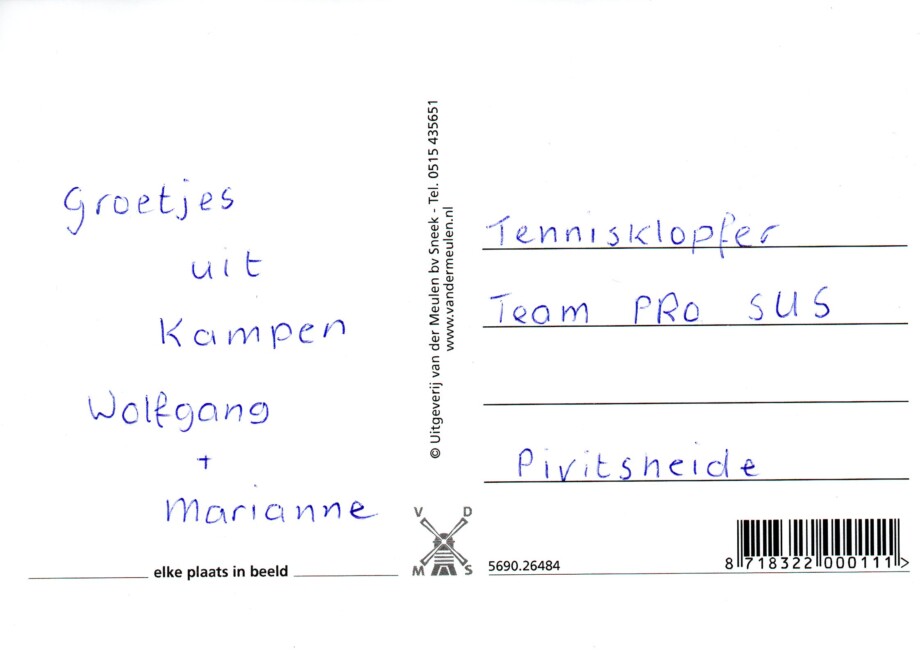 Groetjes
uit
Kampen
Wolfgang
+
Marianne
elke plaats in beeld
© Uitgeverij van der Meulen bv Sneek - Tel. 0515 435651
www.vandermeulen.nl
V D
M S
Tennisklopfer
Team PRo SUS
Pivitsheide
5690.26484
8 718322 000111 >